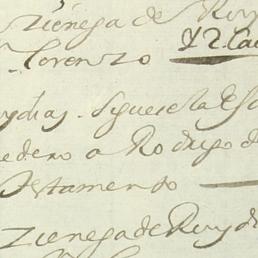 Zienega de Ruy
Lorenzo
ydias. Siguese la Es
edero a Rodrigo de
Testamento
Zienega de Ruy di